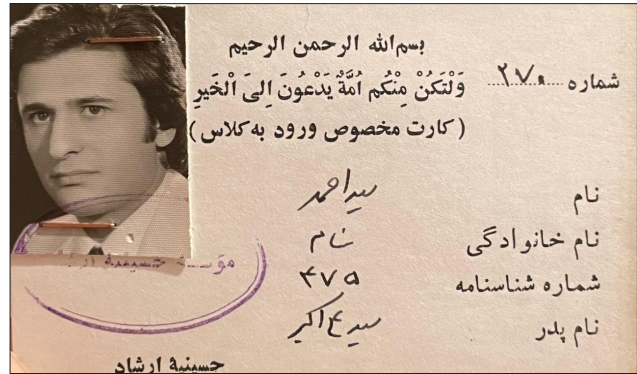 بسم‌الله الرحمن الرحیم
شماره ۲۷۰ وَلْتَکُنْ مِنْکُم اُمَّةٌ یَدْعُونَ اِلیَ الْخَیرِ
(کارت مخصوص ورود به کلاس)
نام سید احمد
نام خانوادگی
شماره شناسنامه ۴۷۵
نام پدر سید اکبر
مؤسسه حسینیة ارشاد
حسینیة ارشاد